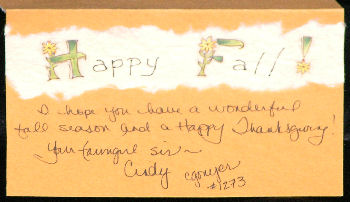 Happy Fall!
I hope you have a wonderful
fall season and a Happy Thanksgiving!
Your farmgirl sis~
Cindy
#1273